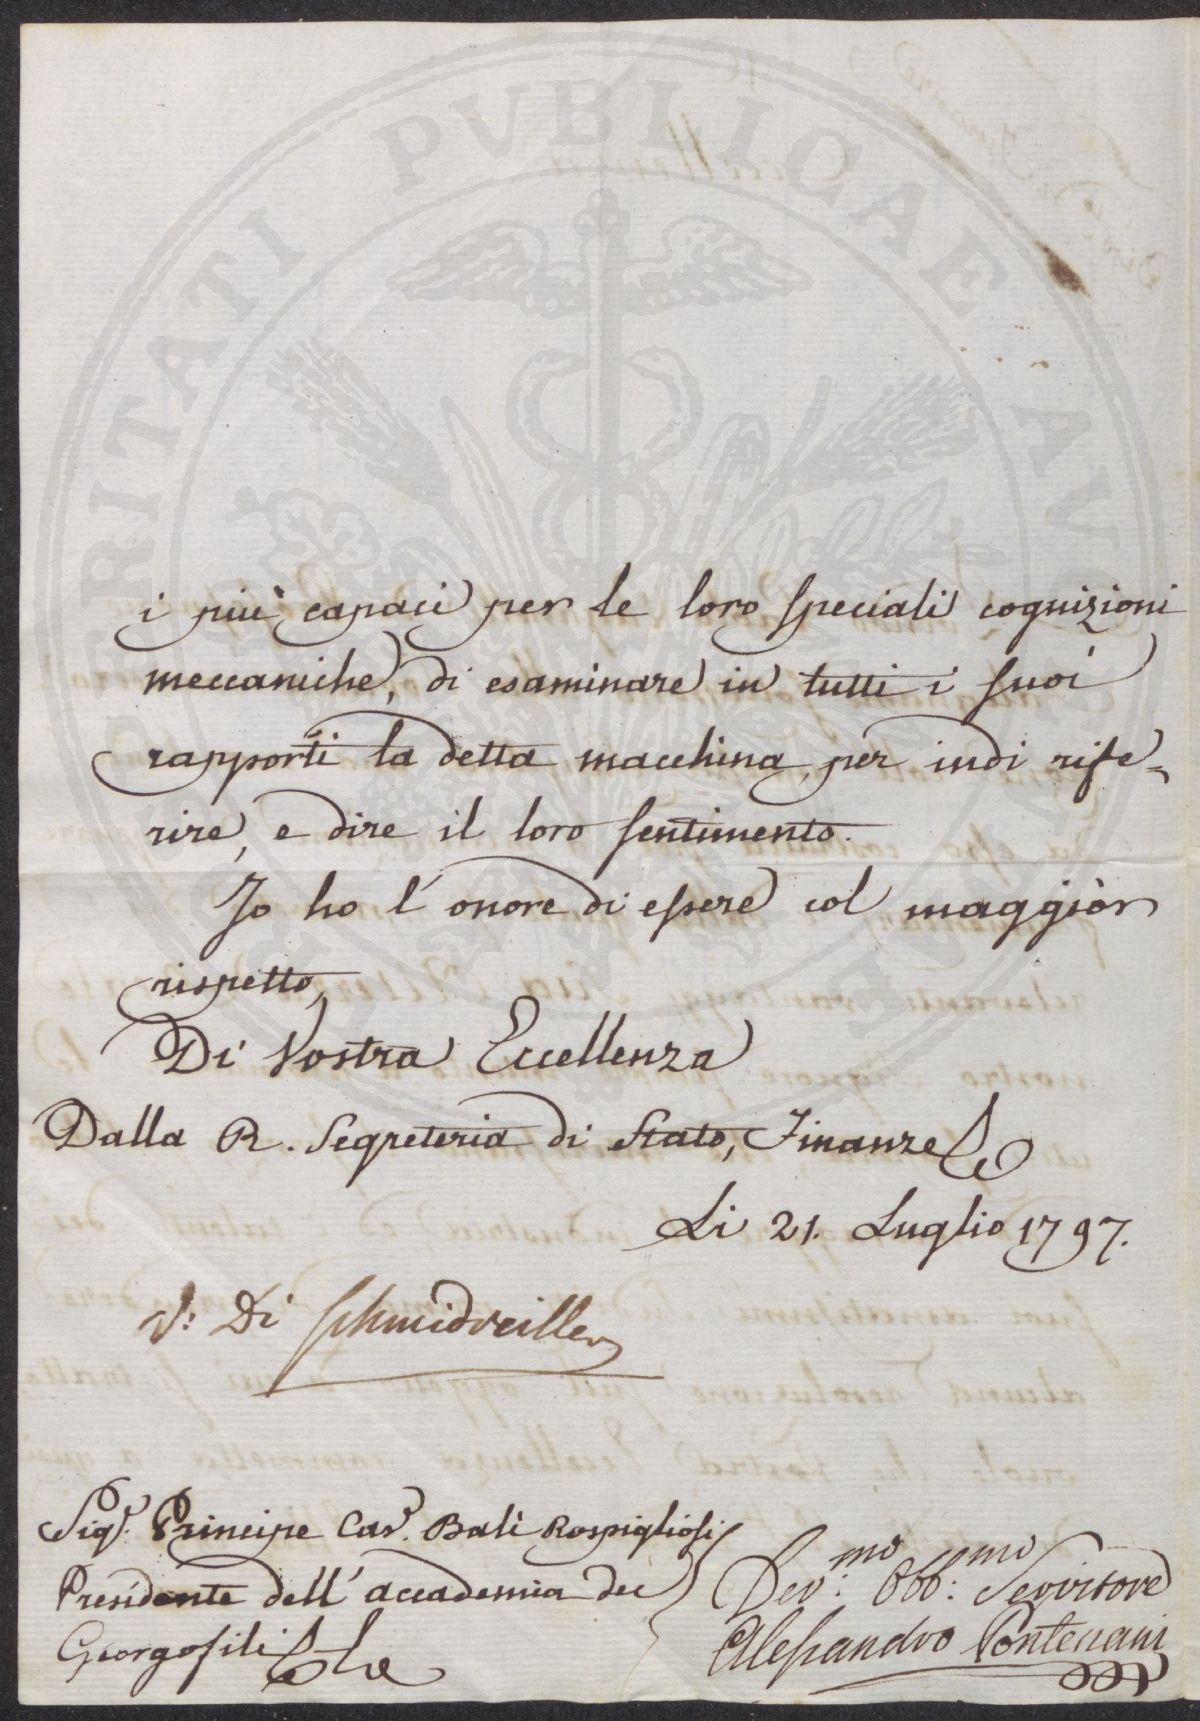 PROSPERITATI PVBLICAE AVGENDAE
i più capaci per le loro speciali cognizioni
meccaniche, di esaminare in tutti i suoi
rapporti la detta macchina, per indi rife-
rire, e dire il loro sentimento.
Io ho l'onore di essere col maggior
rispetto,
Di Vostra Eccellenza
Dalla R. Segreteria di Stato, Finanze
Li 21. Luglio 1797.
V: Di Schmidveiller
Sigr. Principe Cavr. Balì Rospigliosi
Presidente dell'accademia dei
Georgofili
Dev:mo Obb:mo Servitore
Alessandro Pontenani